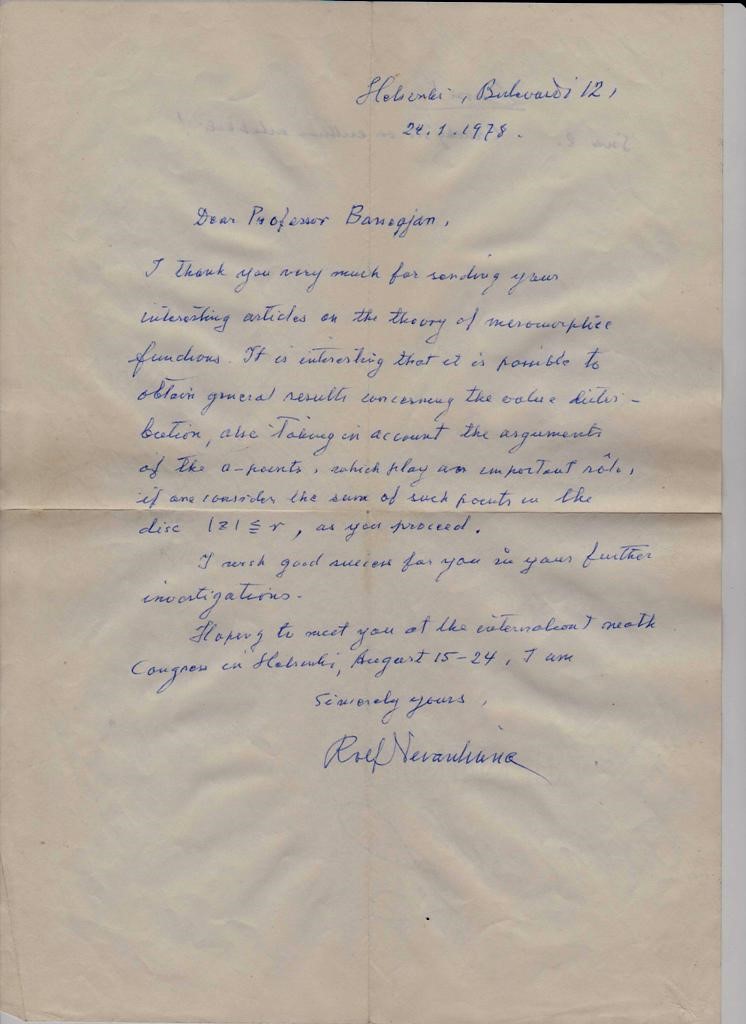 Helsinki, Bulevardi 12,
24.1.1978.
Dear Professor Barsegjan,
I thank you very much for sending your
interesting articles on the theory of meromorphice
functions. It is interesting that it is possible to
obtain general results concerning the value distri-
bution, also taking in account the arguments
of the a-points, which play an important rôle,
if one considers the sum of such points in the
disc |z| ≦ r, as you proceed.
I wish good success for you in your further
investigations.
Hoping to meet you at the international math
Congress in Helsinki, August 15-24, I am
Sincerely yours,
Rolf Nevanlinna